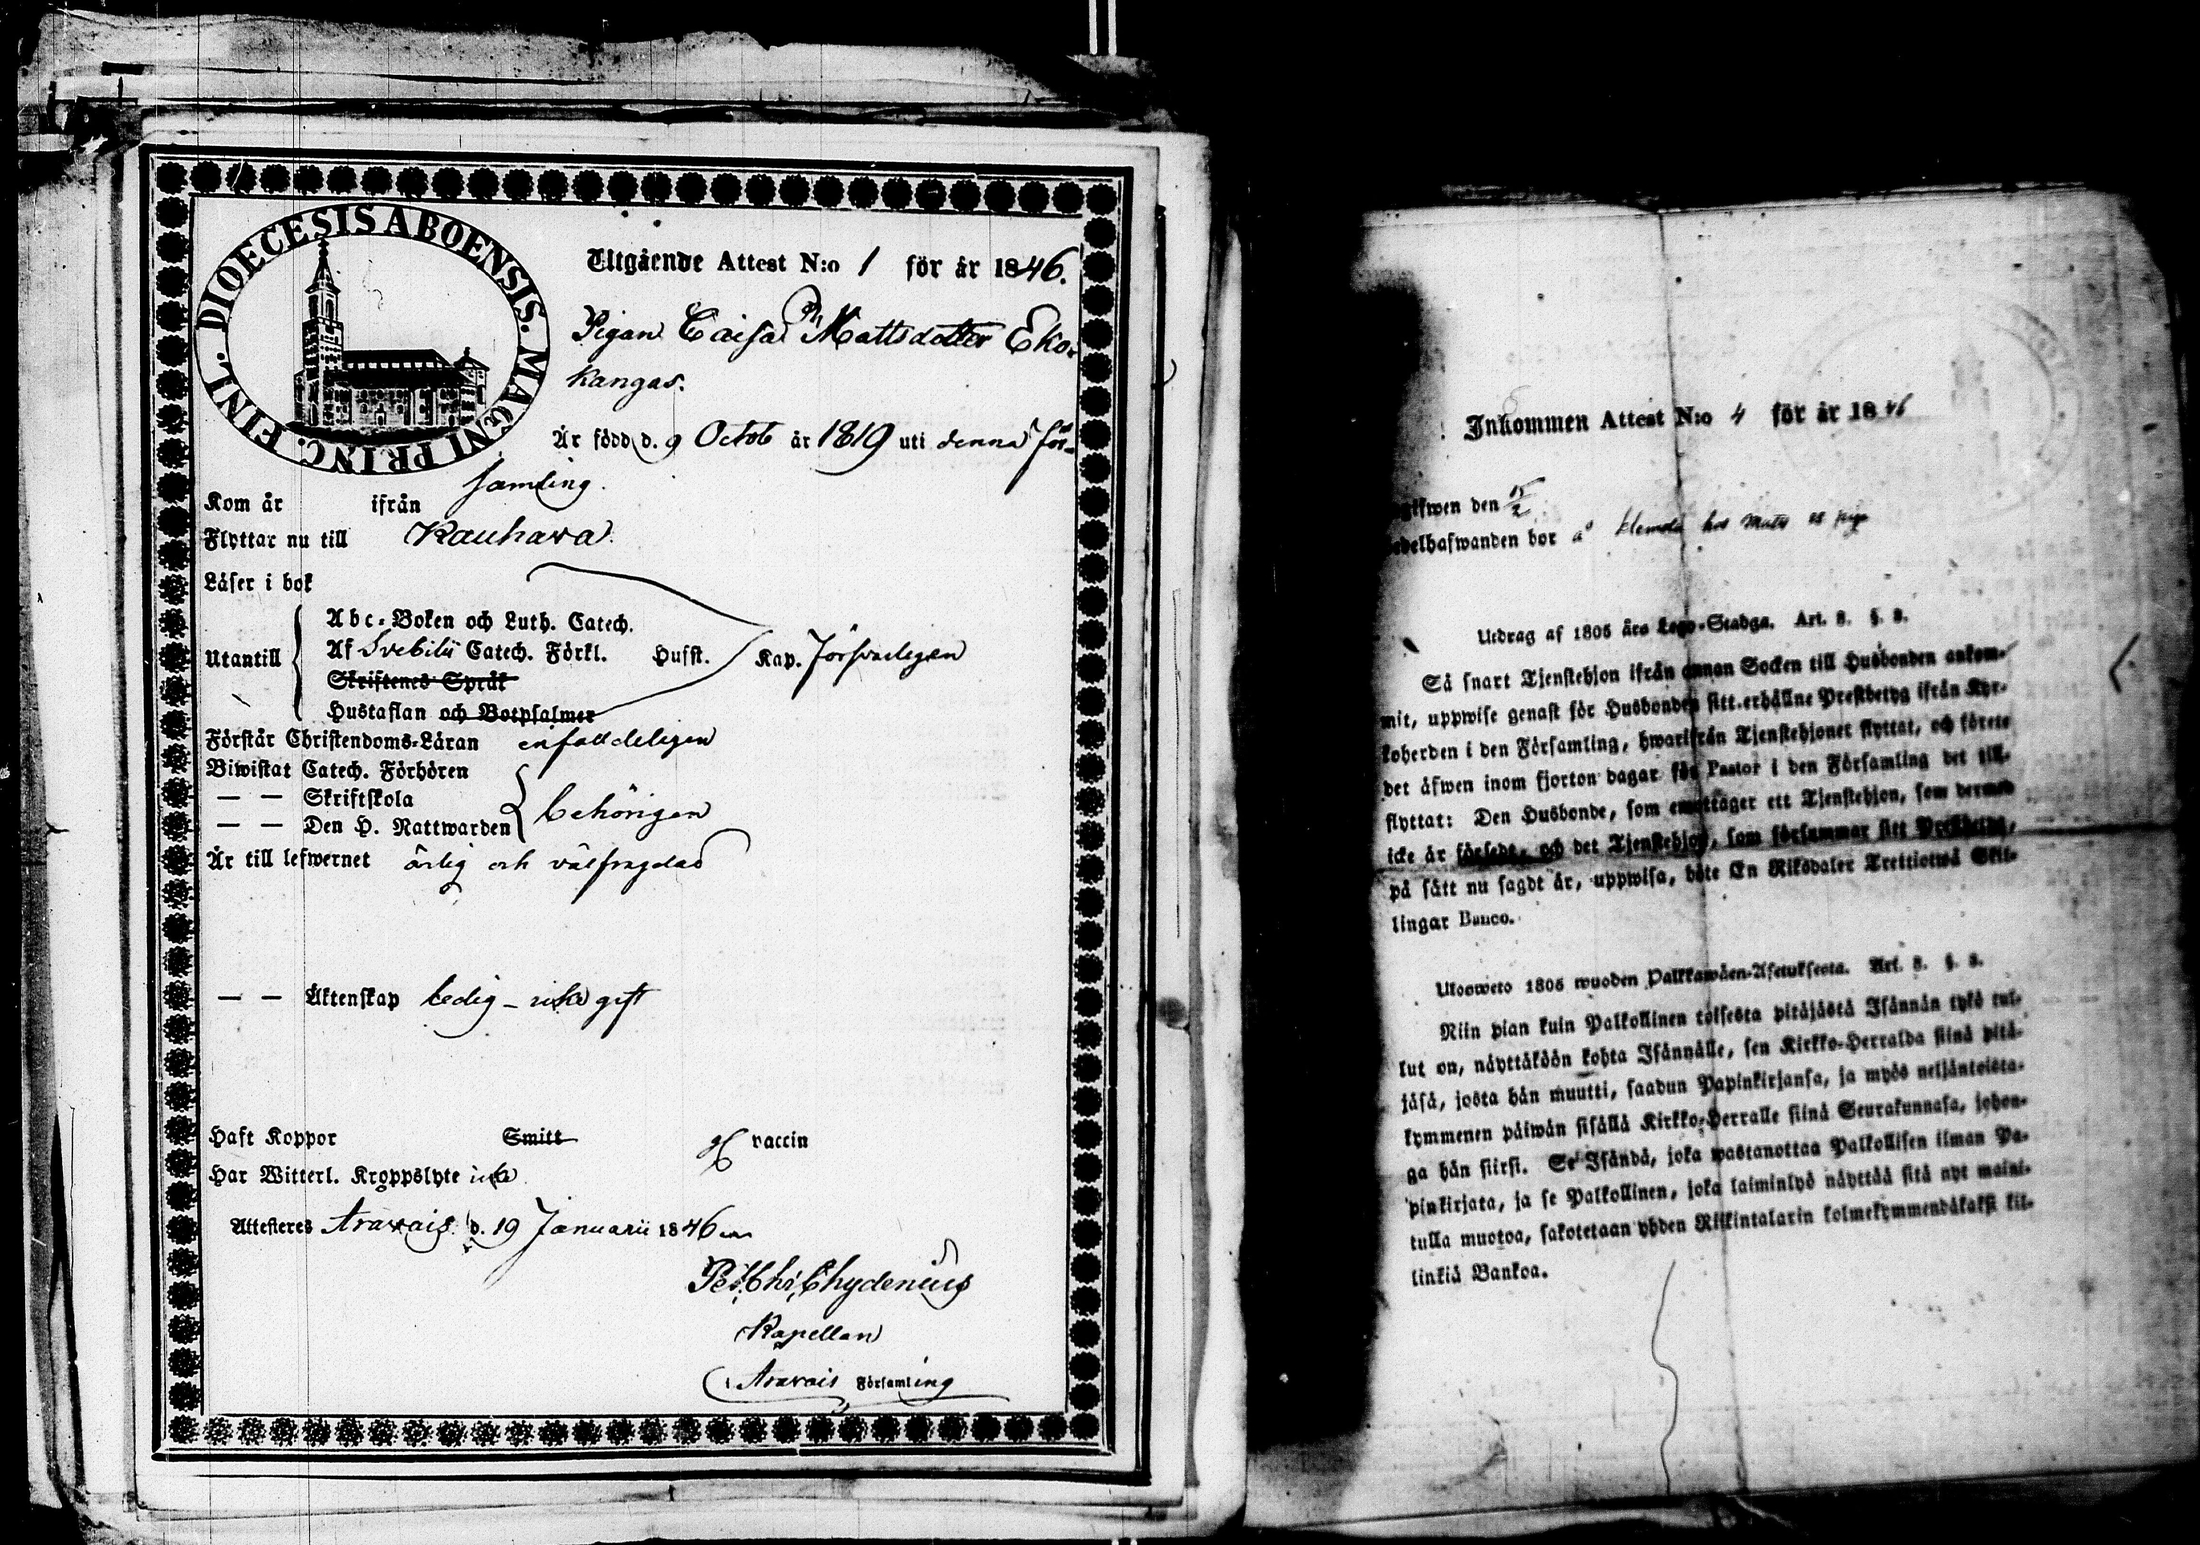 DIOECESIS ABOENSIS. MAGNI PRINC. FINL.
Utgående Attest N:o 1 för år 1846.
Pigan Caisa Mattsdotter Eko-
kangas.
Är född d. 9 Octob år 1819 uti denna för-
samling.
Kom år ifrån
Flyttar nu till Kauhava
Läser i bok
Utantill
Abc-Boken och Luth. Catech.
Af Svebilii Catech. Förkl. Husst. Kap. försvarligen
Skriftenes Språk
Hustaflan och Botpsalmer
Förstår Christendoms-Läran enfaldeligen
Biwistat Catech. Förhören
— — Skriftskola
— — Den H. Nattwarden behörigen
Är till lefwernet ärlig och välfrägdad
— — Äktenskap ledig – icke gift
Haft Koppor Smitt vaccin
Har Witterl. Kroppslyte icke
Attesteres d. 19 Januarii 1846
Chydenius
Kapellan
Församling
Inkommen Attest N:o 4 för år 1846
den 15/2
bor å Klemola hos Mats
Utdrag af 1805 års Lego-Stadga. Art. 8. §. 8.
Så snart Tjenstehjon ifrån annan Socken till Husbonden ankom-
mit, uppwise genast för Husbonden sitt erhållne Prestbetyg ifrån Kyr-
koherden i den Församling, hwarifrån Tjenstehjonet flyttat, och förete
det äfwen inom fjorton dagar för Pastor i den Församling det till-
flyttat: Den Husbonde, som emottager ett Tjenstehjon, som dermed
icke är försedt, och det Tjenstehjon, som försummar sitt Prestbetyg,
på sätt nu sagdt är, uppwisa, böte En Riksdaler Trettiotwå Skil-
lingar Banco.
Ulosweto 1805 wuoden Palkkawäen-Asetuksesta. Art. 8. §. 8.
Niin pian kuin Palkollinen toisesta pitäjästä Isännän tykö tul-
lut on, näyttäköön kohta Isännälle, sen Kirkko-Herralda siinä pitä-
jäsä, josta hän muutti, saadun Papinkirjansa, ja myös neljäntoista-
kymmenen päiwän sisällä Kirkko-Herralle siinä Seurakunnasa, johon-
ga hän siirsi. Se Isändä, joka wastanottaa Palkollisen ilman Pa-
pinkirjata, ja se Palkollinen, joka laiminlyö näyttää sitä nyt maini-
tulla muotoa, sakotetaan yhden Riikintalarin kolmekymmendäkaksi kil-
linkiä Bankoa.